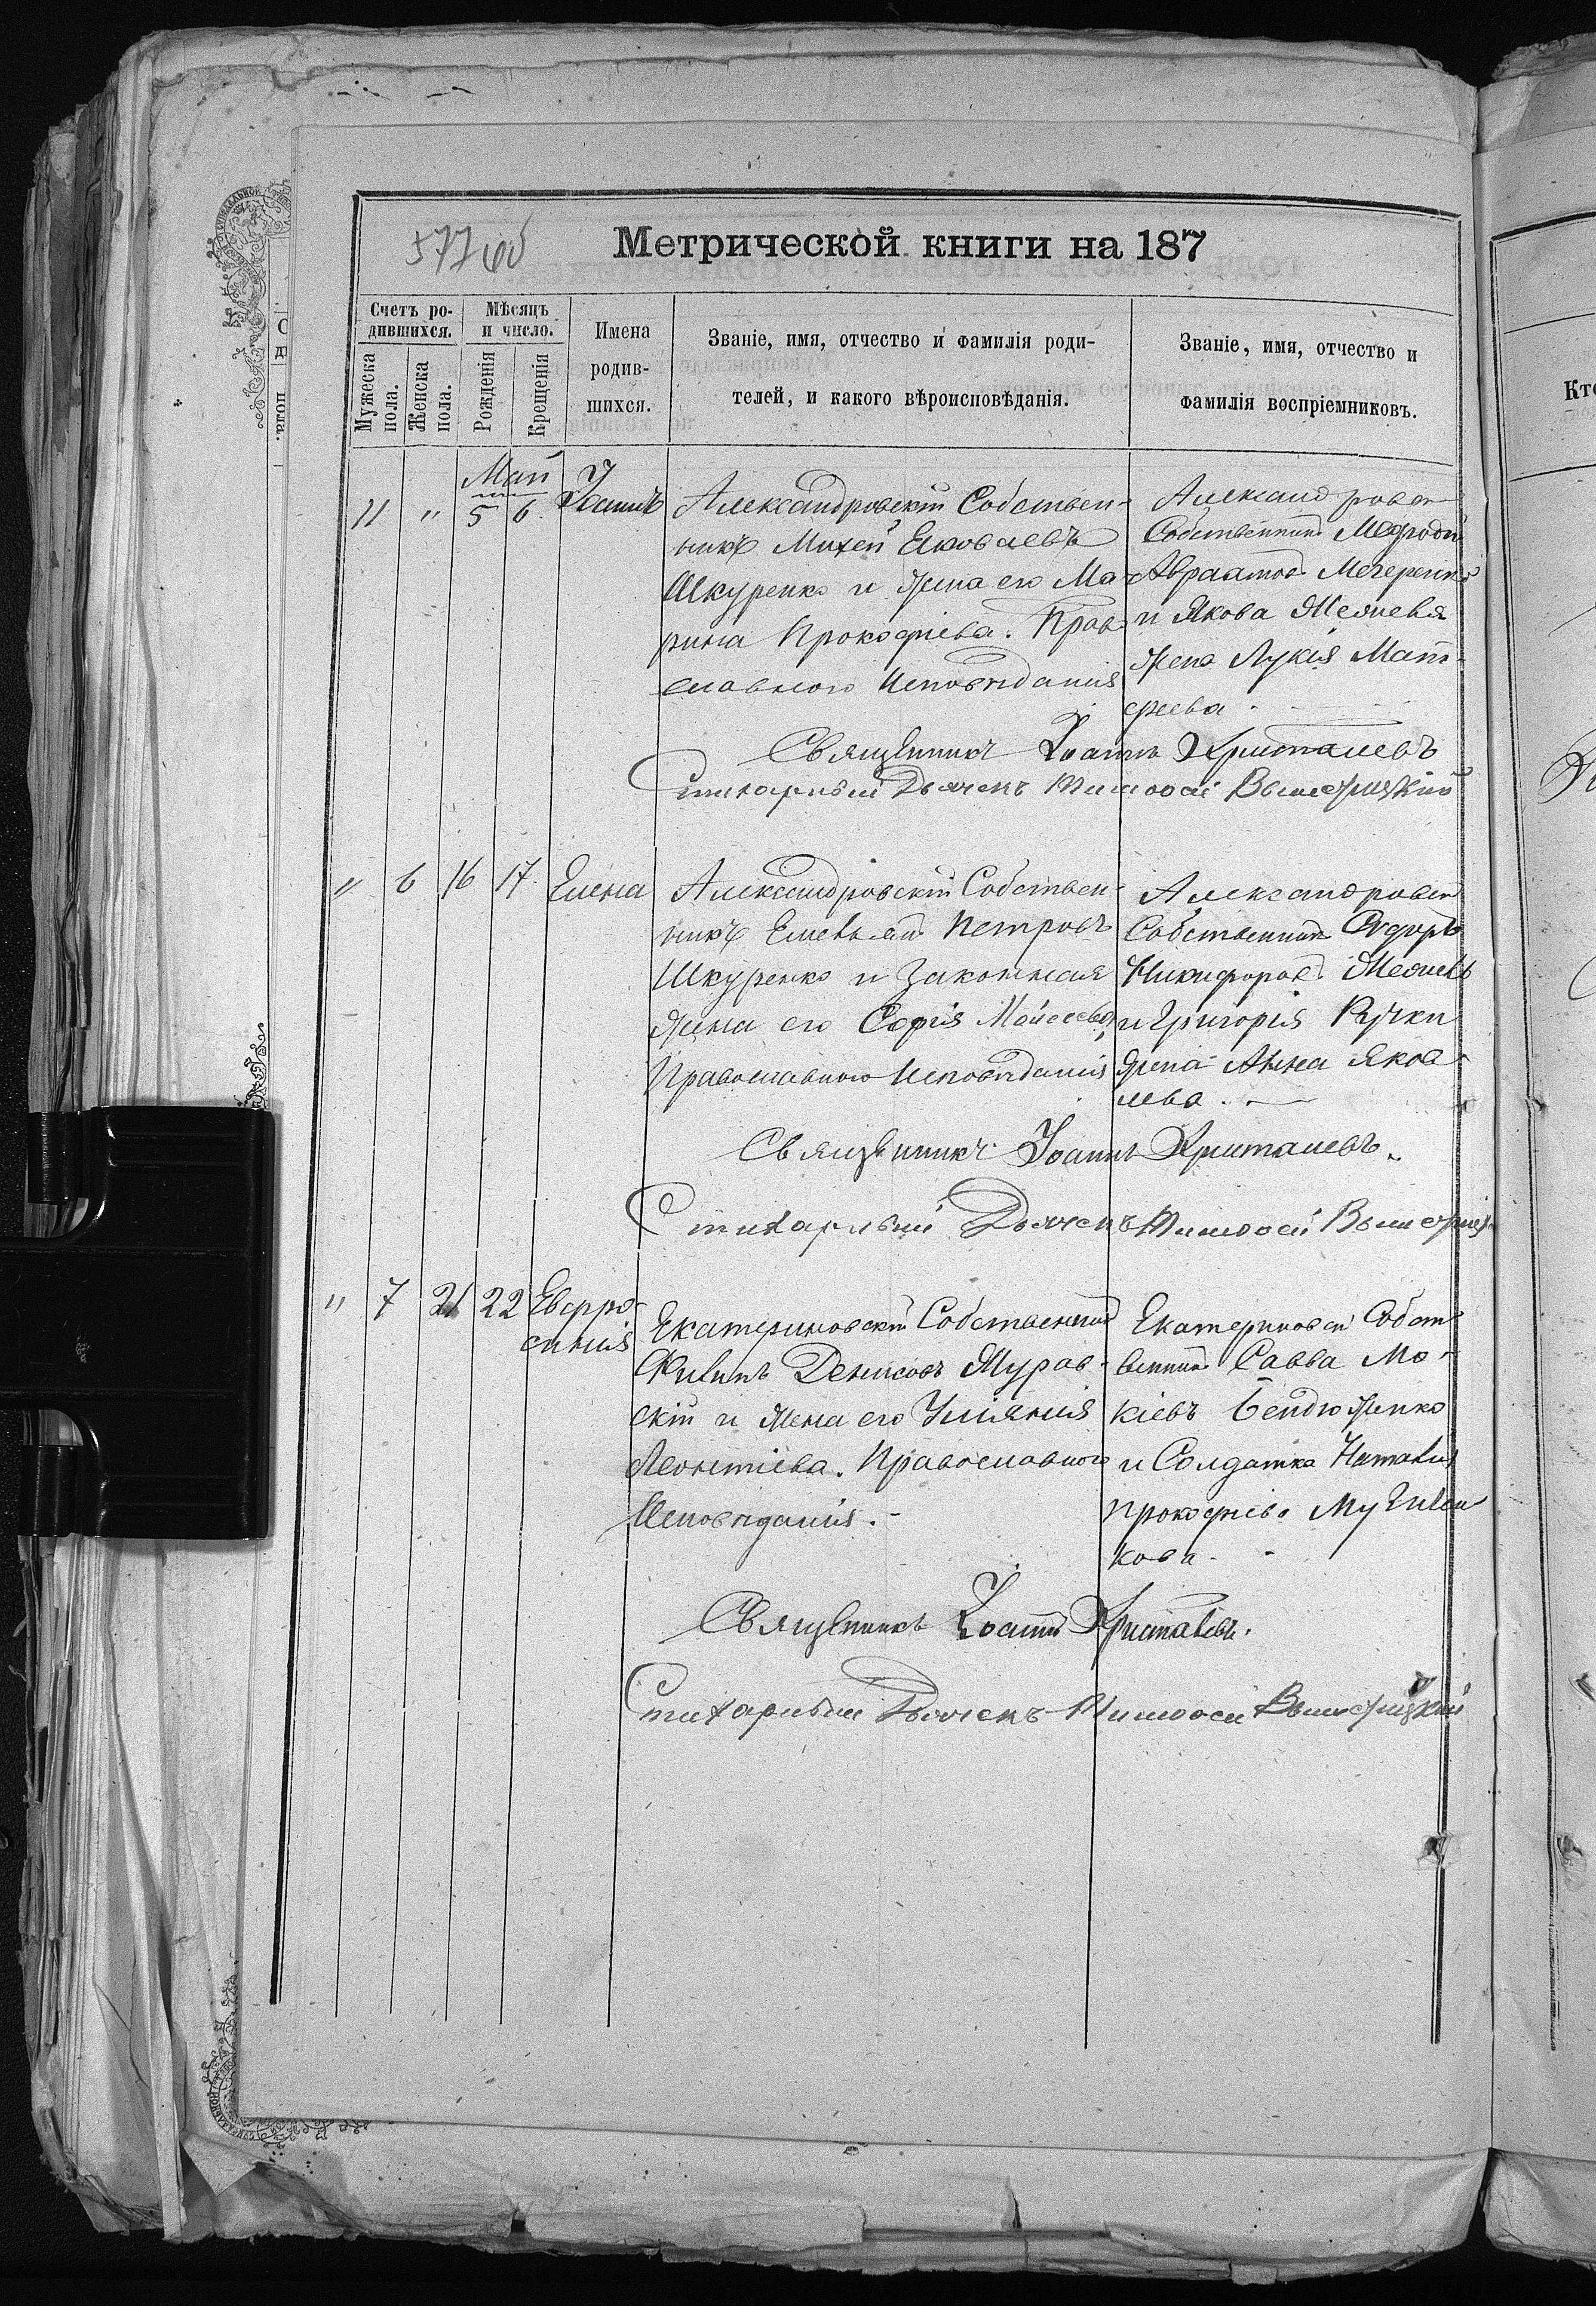 577 об
Метрической книги на 187
Счетъ ро-
дившихся.
Мѣсяцъ
и число.
Мужеска
пола.
Женска
пола.
Рожденія
Крещенія
Имена
родив-
шихся.
Званіе, имя, отчество и фамилія роди-
телей, и какого вѣроисповѣданія.
Званіе, имя, отчество и
фамилія воспріемниковъ.
Май
11 " 5 6 Іоаннъ
Александровскій Собствен-
никъ Михей Яковлевъ
Шкуренко и жена его Ма-
рина Прокофіева. Право-
славного Исповѣданія
Александровск
Собственник Меѳодій
Авраамов
и Якова
жена Лукія Мат-
феева.
Священникъ Іоаннъ Христалевъ
Стихарный Дьячекъ Тимоѳей Вышемірскій
" 6 16 17 Елена
Александровскій Собствен-
никъ Емельян Петровъ
Шкуренко и законная
жена его Софія Мойсеева,
Православного Исповѣданія
Александровск
Собственник Ѳедоръ
Никифоров
и Григорія Ручки
жена Анна Яков-
лева.
Священникъ Іоаннъ Христалевъ.
Стихарный Дьячекъ Тимоѳей
" 7 21 22 Евфро-
синія
Екатериновскій Собственник
Филипъ Денисовъ Журав-
скій и жена его Уліянія
Леонтіева. Православного
Исповѣданія.
Екатериновскі Собст-
венник Савва Мо-
кіевъ Бендюженко
и Солдатка Наталія
Прокофіева
кова.
Священникъ Іоаннъ Христалевъ.
Стихарный Дьячекъ Тимоѳей